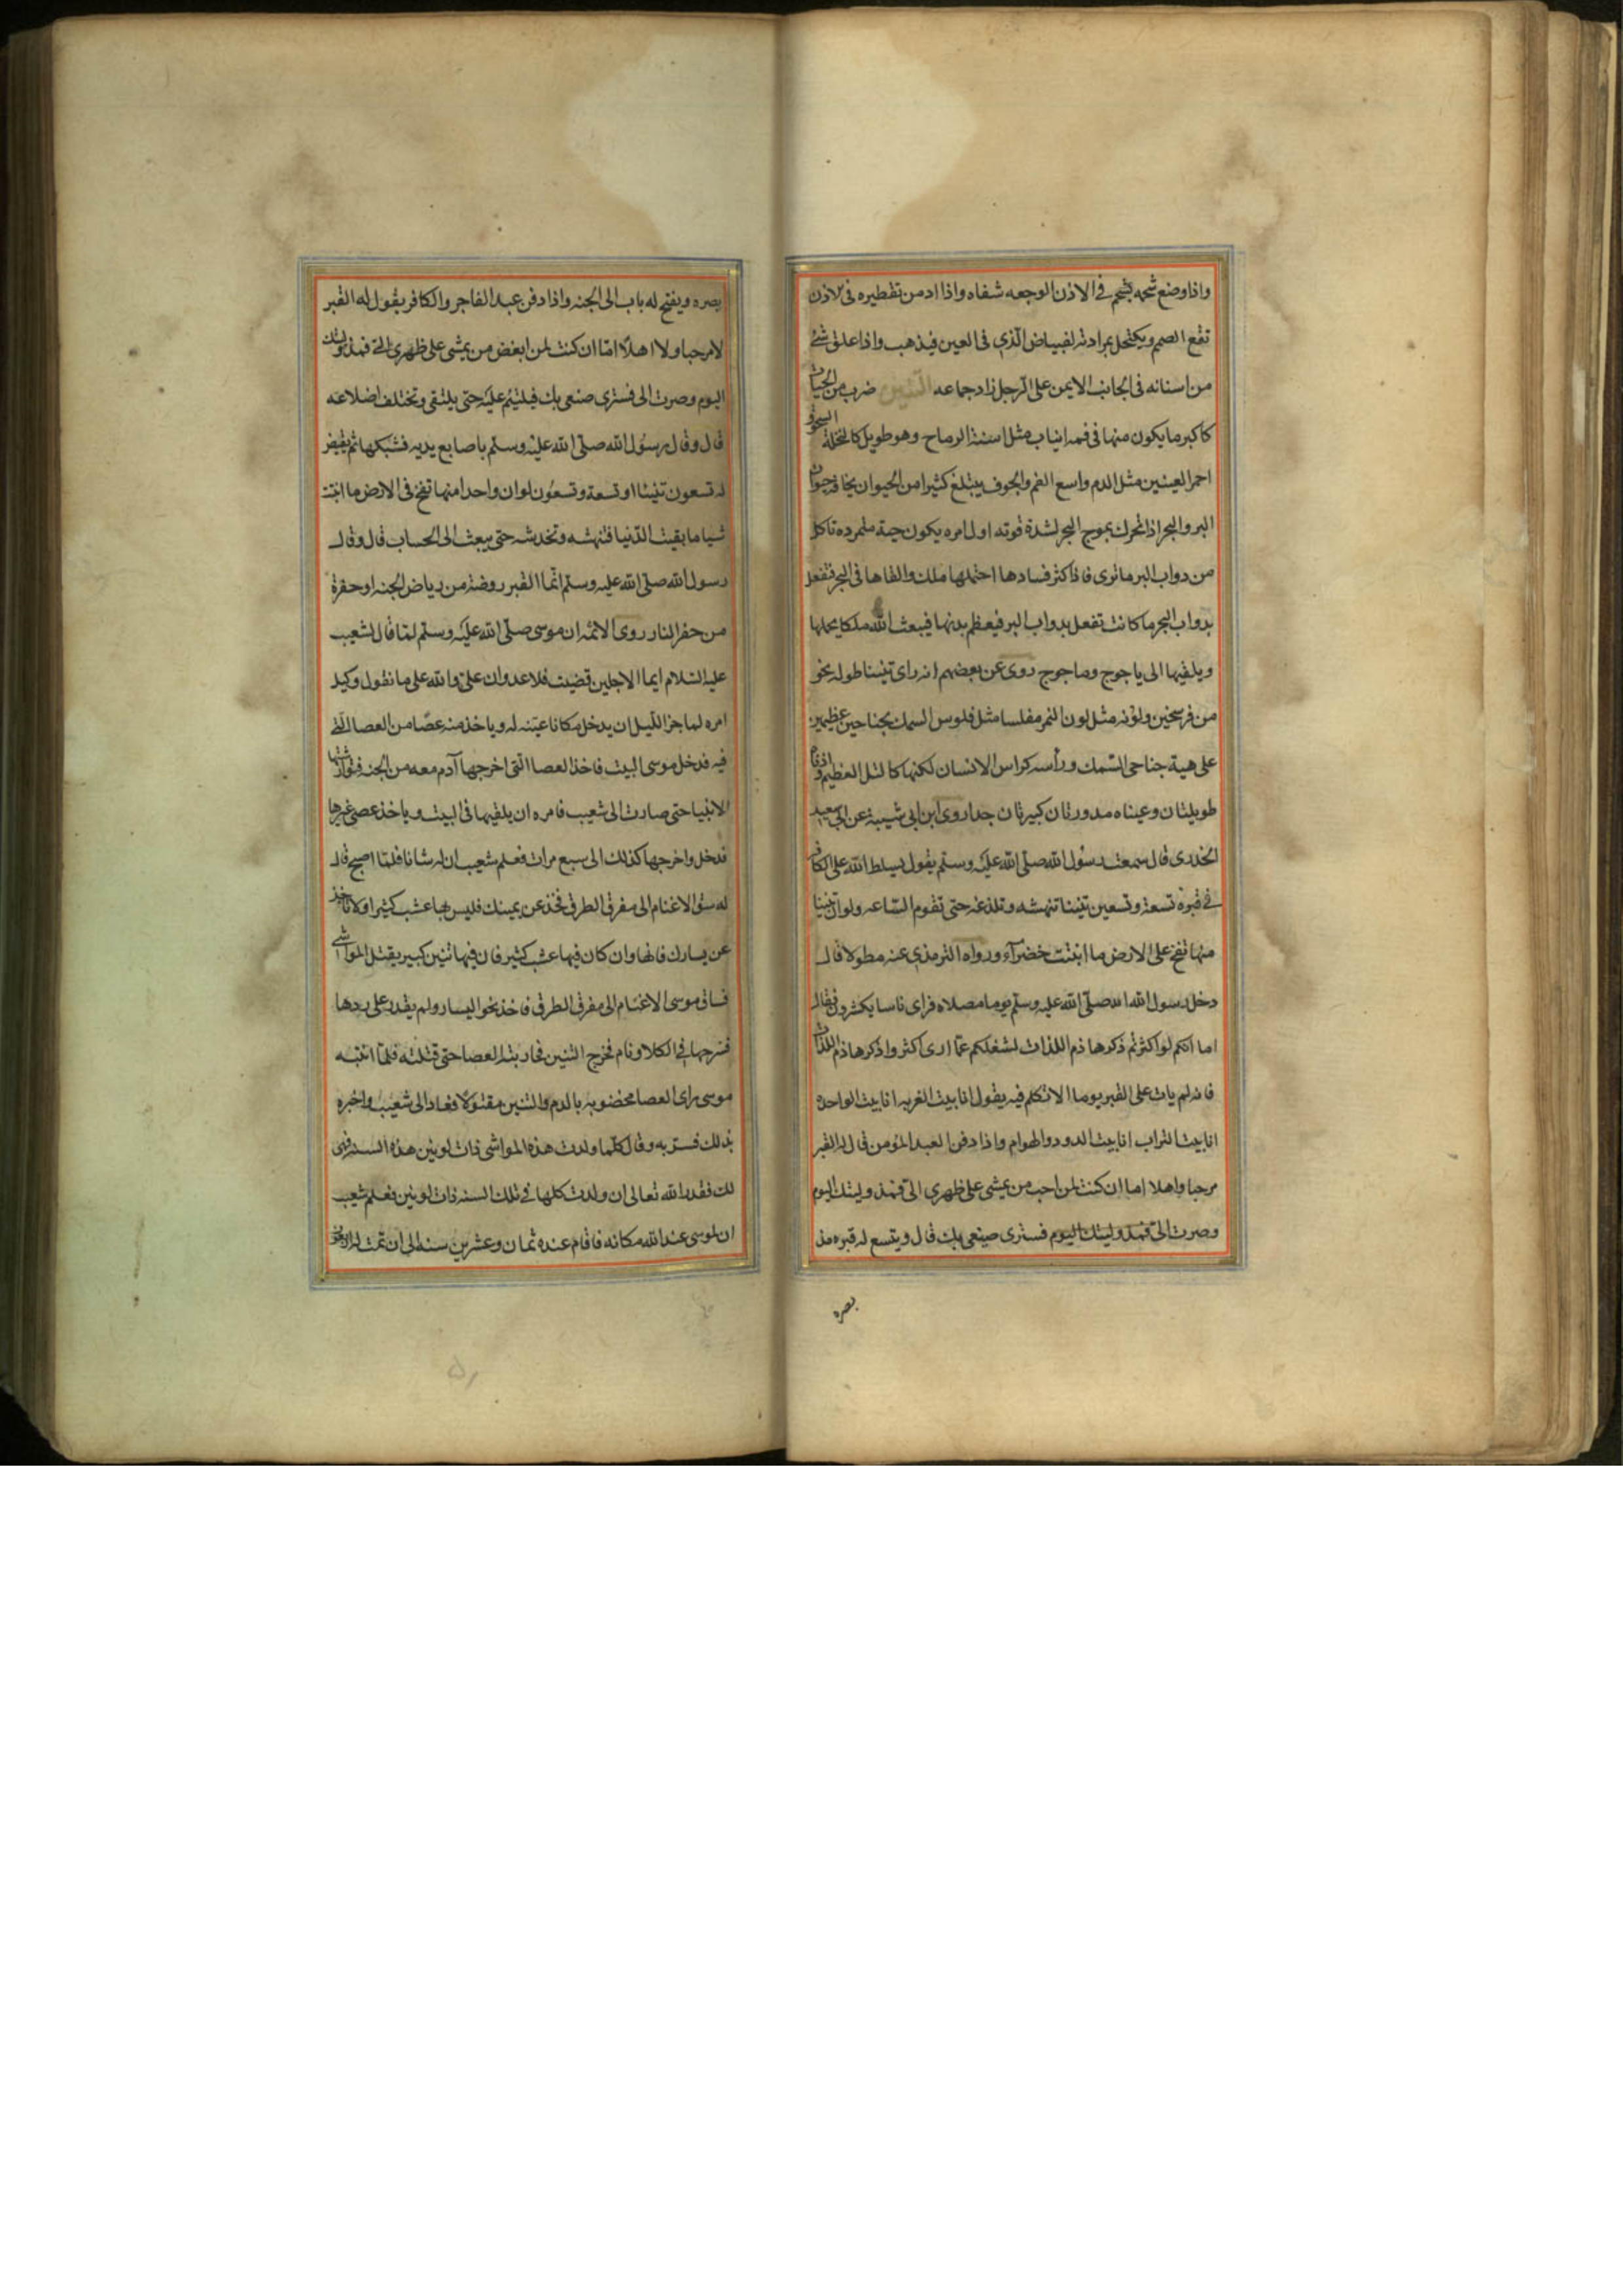 واذا وضع شحمه بشحم فى الاذن الوجعه شفاه واذا ادمن تقطيره فى الاذن
نفع الصمم ويكتحل بمرارته لبياض الذى فى العين فيذهب واذا علق شئ
من اسنانه فى الجانب الايمن على الرجل زاد جماعه التنين ضرب من الحيات
كاكبر ما يكون منها فى فمه انياب مثل اسنة الرماح وهو طويل كالنخلة السحوق
احمر العينين مثل الدم واسع الفم والجوف يبتلع كثيرا من الحيوان يخافه حيوان
البر والبحر اذا تحرك يموج البحر لشدة قوته اول امره يكون حية متمرده تاكل
من دواب البر ما ترى فاذا كثر فسادها احتملها ملك والقاها فى البحر فتفعل
بدواب البحر ما كانت تفعل بدواب البر فيعظم بدنها فيبعث الله ملكا يحملها
ويلقيها الى ياجوج وماجوج روى عن بعضهم انه راى تنينا طوله نحو
من فرسخين ولونه مثل لون النمر مفلسا مثل فلوس السمك بجناحين عظيمين
على هية جناحى السمك ورأسه كراس الانسان لكنها كالتل العظيم واذناه
طويلتان وعيناه مدورتان كبيرتان جدا روى ابن ابى شيبة عن ابى سعيد
الخدرى قال سمعت رسول الله صلى الله عليه وسلم يقول يسلط الله على الكافر
فى قبره تسعة وتسعين تنينا تنهشه وتلذغه حتى تقوم الساعه ولو ان تنينا
منها نفخ على الارض ما انبتت خضرآء ورواه الترمذى عنه مطولا قال
دخل رسول الله صلى الله عليه وسلم يوما مصلاه فراى ناسا يكشرون فقال
اما انكم لو اكثرتم ذكر هاذم اللذات لشغلكم عما ارى اكثروا ذكر هاذم اللذات
فانه لم يات على القبر يوما الا تكلم فيه يقول انا بيت الغربه انا بيت الواحدة
انا بيت التراب انا بيت الدود والهوام واذا دفن العبد المؤمن قال له القبر
مرحبا واهلا اما ان كنت لمن احب من يمشى على ظهرى الىّ فمذ وليتك اليوم
وصرت الىّ فمذ وليتك اليوم فسترى صنيعى بك قال ويتسع له قبره مد
بصره
بصره ويفتح له باب الى الجنه واذا دفن عبد الفاجر والكافر يقول له القبر
لا مرحبا ولا اهلا اما ان كنت لمن ابغض من يمشى على ظهرى الىّ فمذ وليتك
اليوم وصرت الى فسترى صنعى بك فيلتئم عليه حتى يلتقى وتختلف اضلاعه
قال وقال رسول الله صلى الله عليه وسلم باصابع يديه فشبكها ثم يقيض
له تسعون تنينا او تسعة وتسعون لو ان واحدا منها نفخ فى الارض ما انبتت
شيا ما بقيت الدنيا فتنهشه وتخدشه حتى يبعث الى الحساب قال وقال
رسول الله صلى الله عليه وسلم انما القبر روضة من رياض الجنه او حفرة
من حفر النار روى الائمه ان موسى صلى الله عليه وسلم لما قال لشعيب
عليه السلام ايما الاجلين قضيت فلا عدوان على والله على ما نقول وكيل
امره لما جن الليل ان يدخل مكانا عينه له وياخذ منه عصا من العصا التى
فيه فدخل موسى البيت فاخذ العصا التى اخرجها آدم معه من الجنه فتوارثتها
الانبيا حتى صارت الى شعيب فامره ان يلقيها فى البيت وياخذ عصى غيرها
فدخل واخرجها كذلك الى سبع مرات فعلم شعيب ان له شانا فلما اصبح قال
له سق الاغنام الى مفرق الطرق فخذ عن يمينك فليس بها عشب كثير اولا تاخذ
عن يسارك فانها وان كان فيها عشب كثير فان فيها تنين كبير يقتل المواشى
فساق موسى الاغنام الى مفرق الطرق فاخذ نحو اليسار ولم يقدر على ردها
فسرحها فى الكلا ونام فخرج التنين فحاربته العصا حتى قتلته فلما انتبه
موسى راى العصا مخضوبه بالدم والتنين مقتولا فعاد الى شعيب واخبره
بذلك فسر به وقال كلما ولدت هذه المواشى ذات لونين هذه السنه فهى
لك فقدر الله تعالى ان ولدت كلها فى تلك السنه ذات لونين فعلم شعيب
ان لموسى عند الله مكانه فاقام عنده ثمان وعشرين سنه الى ان تمت له